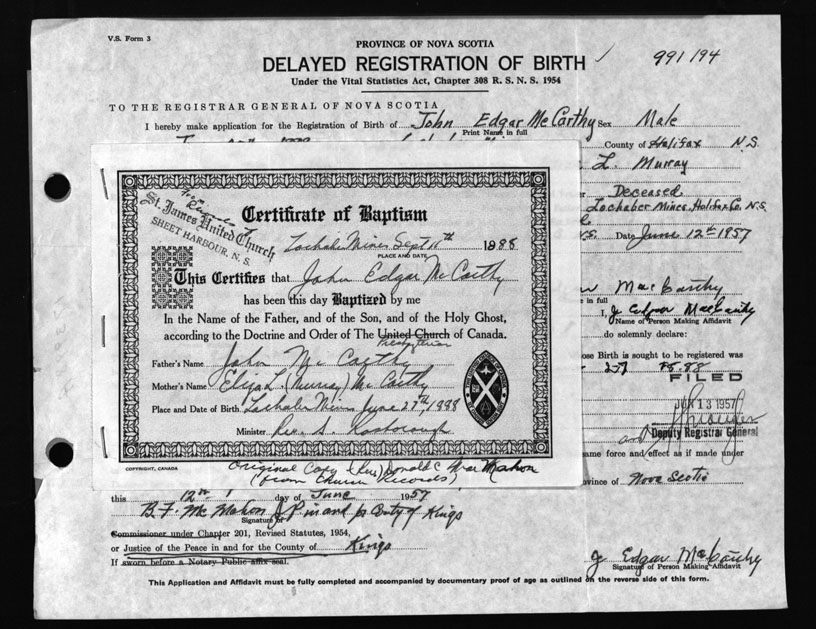 V.S. Form 3
PROVINCE OF NOVA SCOTIA
DELAYED REGISTRATION OF BIRTH
991194
Under the Vital Statistics Act, Chapter 308 R. S. N. S. 1954
TO THE REGISTRAR GENERAL OF NOVA SCOTIA
I hereby make application for the Registration of Birth of John Edgar McCarthy Sex Male
Print Name in full
County of Halifax N.S.
L. Murray
Deceased
Lochaber Mines, Halifax Co. N.S.
N.S. Date June 12th 1957
MacCarthy
in full
I, J Edgar MacCarthy
Name of Person Making Affidavit
do solemnly declare:
ose Birth is sought to be registered was
FILED
JUN 13 1957
Deputy Registrar General
and
ame force and effect as if made under
ovince of Nova Scotia
St. James United Church
SHEET HARBOUR, N. S.
Certificate of Baptism
Lochaber Mines Sept 11th 1888
PLACE AND DATE
This Certifies that John Edgar McCarthy
has been this day Baptized by me
In the Name of the Father, and of the Son, and of the Holy Ghost,
according to the Doctrine and Order of The United Church of Canada.
Presbyterian
Father's Name John McCarthy
Mother's Name Eliza L. (Murray) McCarthy
Place and Date of Birth Lochaber Mines June 27th, 1888
Minister Rev. S. Rosborough
COPYRIGHT, CANADA
Original Copy (Rev) Donald C MacMahon
(from Church Records)
this 12th day of June 1957
B. F. McMahon J P in and for County of Kings
Signature of
Commissioner under Chapter 201, Revised Statutes, 1954,
or Justice of the Peace in and for the County of Kings
If sworn before a Notary Public affix seal.
J Edgar MacCarthy
Signature of Person Making Affidavit
This Application and Affidavit must be fully completed and accompanied by documentary proof of age as outlined on the reverse side of this form.